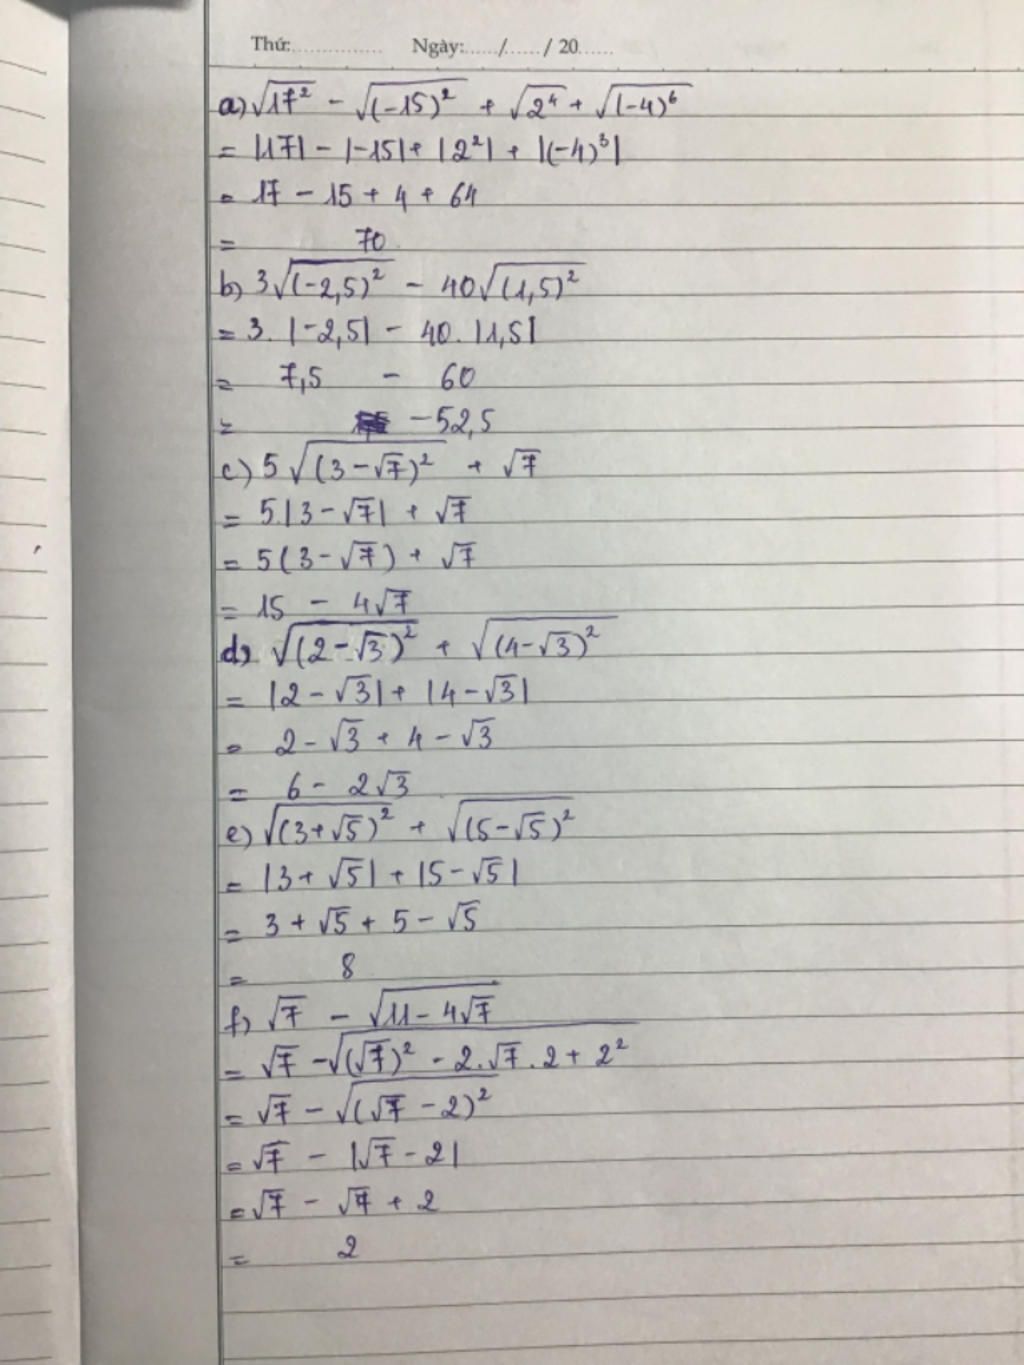 Thứ:............... Ngày:....../....../ 20......
a) √17² - √(-15)² + √2⁴ + √(-4)⁶
= |17| - |-15| + |2²| + |(-4)³|
= 17 - 15 + 4 + 64
= 70
b) 3√(-2,5)² - 40√(1,5)²
= 3. |-2,5| - 40. |1,5|
= 7,5 - 60
= -52,5
c) 5√(3-√7)² + √7
= 5.|3-√7| + √7
= 5(3-√7) + √7
= 15 - 4√7
d) √(2-√3)² + √(4-√3)²
= |2-√3| + |4-√3|
= 2-√3 + 4-√3
= 6 - 2√3
e) √(3+√5)² + √(5-√5)²
= |3+√5| + |5-√5|
= 3+√5 + 5-√5
= 8
f) √7 - √11-4√7
= √7 - √(√7)² - 2.√7.2 + 2²
= √7 - √(√7-2)²
= √7 - |√7-2|
= √7 - √7 + 2
= 2